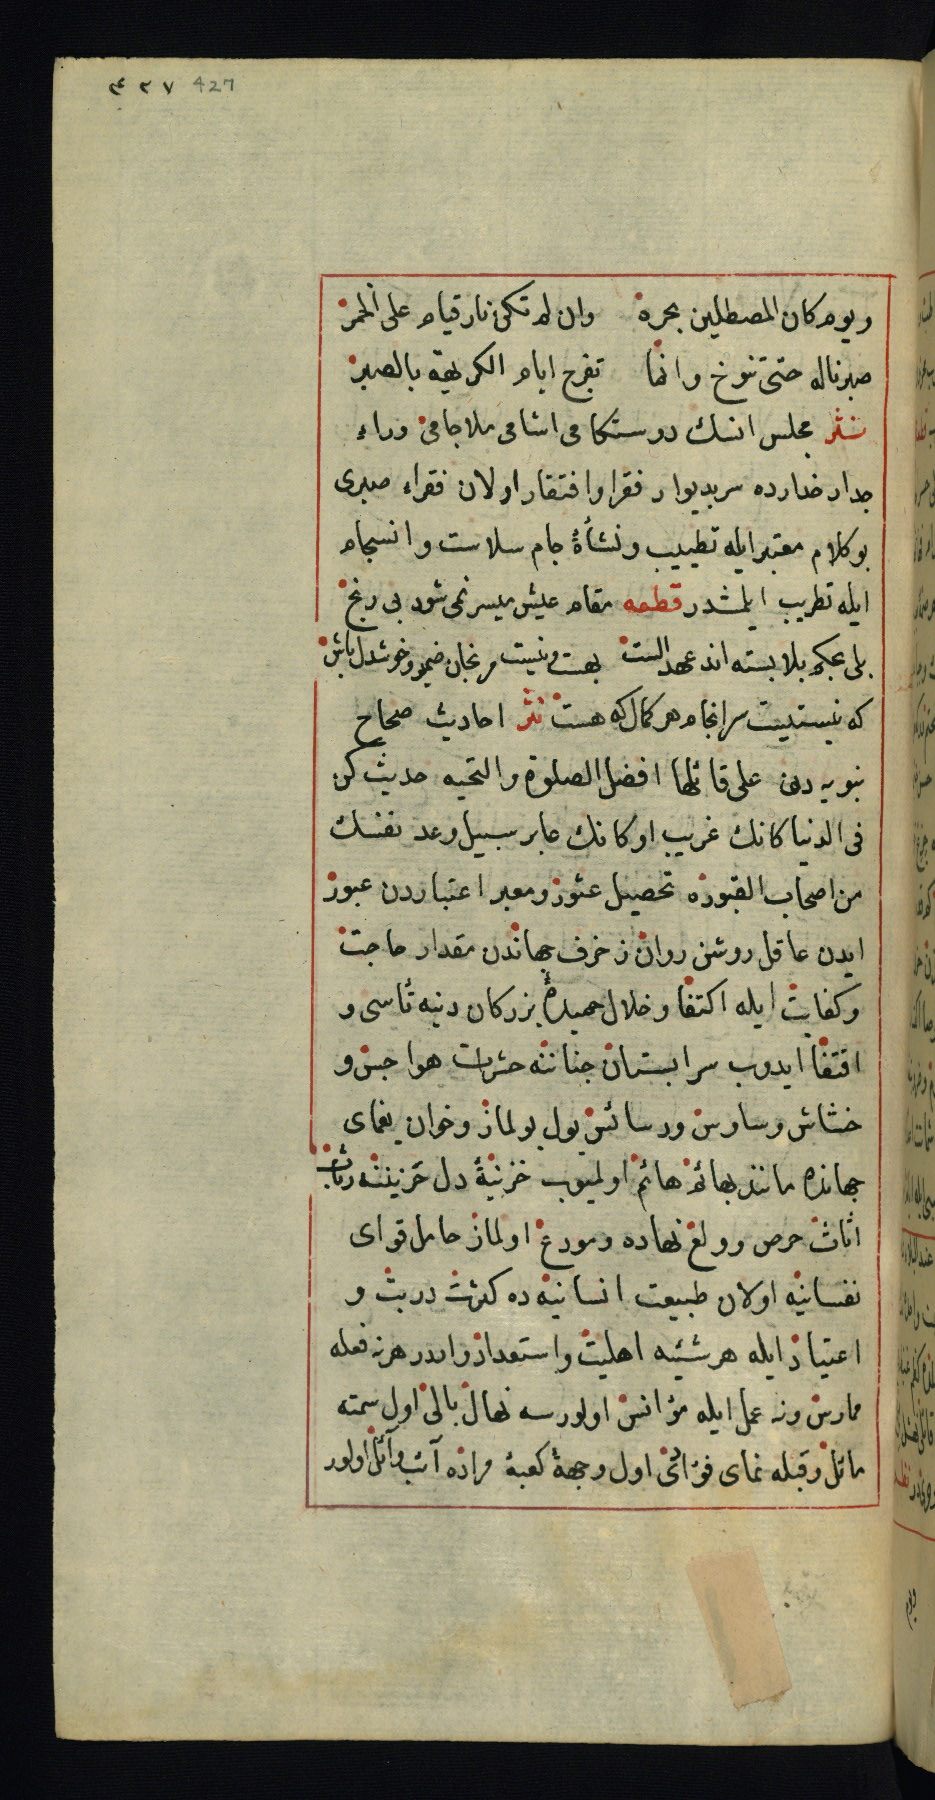 ٤٢٧ 427
ويوم كان المصطلين بحره وان لم تكن نار قيام على الجمر
صبرنا له حتى تنوخ وانما تفرج ايام الكريهة بالصبر
نثر مجلس انسك دوستكامى اشامى ملا جامى وراء
جدار خدارده سر بديوار فقر وافتقار اولان فقراء صبرى
بو كلام معتبر ايله تطبيب ونشأهٔ جام سلاست وانسجام
ايله تطريب ايلمشدر قطعه مقام عيش ميسر نمى شود بى رنج
بلى بحكم بلا بسته اند عهد الست بهست ونيست مرنجان ضمير وخوشدل باش
كه نيستيست سرانجام هر كمال كه هست نثر احاديث صحاح
نبويه دن على قائلها افضل الصلوة والتحيه حديث كن
فى الدنيا كانك غريب او كانك عابر سبيل وعد نفسك
من اصحاب القبوره تحصيل عثور ومعبر اعتباردن عبور
ايدن عاقل روشن روان زخرف جهاندن مقدار حاجت
وكفايت ايله اكتفا وخلال حميدهٔ بزركان دينه تأسى و
اقتفا ايدوب سرابستان جناننه حشرات هواجس و
خشاش وساوس ودسائس يول بولماز وخوان يغماى
جهانده مانند بهائم هائم اولميوب خزينهٔ دل حزيننه رثاث
اثاث حرص وولع نهاده ومودع اولماز حامل قواى
نفسانيه اولان طبيعت انسانيه ده كثرت دربت و
اعتياد ايله هر شيئه اهليت واستعداد واردر هر نه فعله
ممارس ونه عمل ايله مؤانس اولورسه نهال بالى اول سمته
مائل وقبله نماى فؤادى اول وجههٔ كعبهٔ مراده آئب وآئل اولور